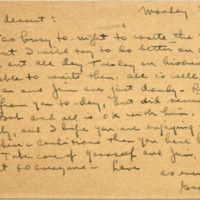 Monday
dearest:
too busy to-night to write the
but I will try to do better on
but all day Tuesday on business
able to write then. all is well
an and Jim are just dandy.
from you to-day, but did
Bob and all is ok with him.
ly, and I hope you are enjoying
conditions than you have
Take care of yourself and Jim,
t to everyone - have
as ever